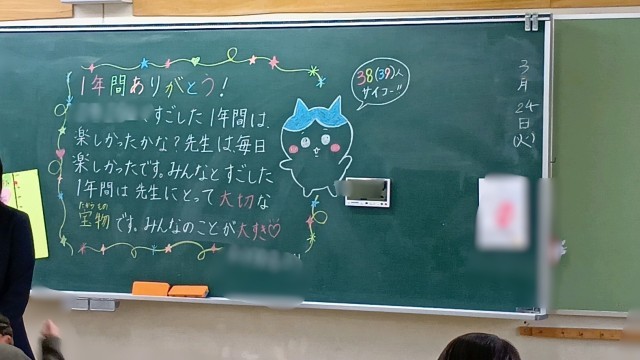 1年間ありがとう!
、すごした1年間は、
楽しかったかな?先生は、毎日
楽しかったです。みんなとすごした
1年間は先生にとって大切な
たからもの
宝物です。みんなのことが大すき♡
38(37)人
サイコー!!
3月24日(火)